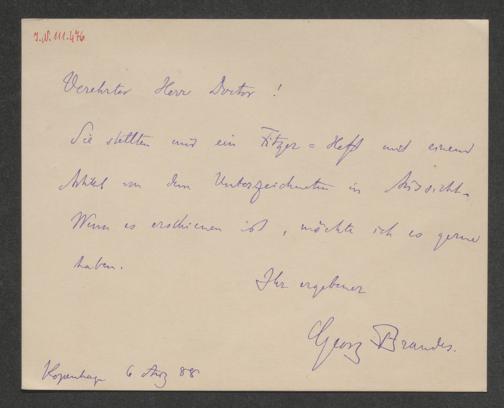 I.N. 111.476
Verehrter Herr Doctor!
Sie stellten mir ein Fitger=Heft mit einem
Artikel von dem Unterzeichneten in Aussicht.
Wenn es erschienen ist, möchte ich es gerne
haben.
Ihr ergebener
Georg Brandes.
Kopenhagen 6 Aug 88